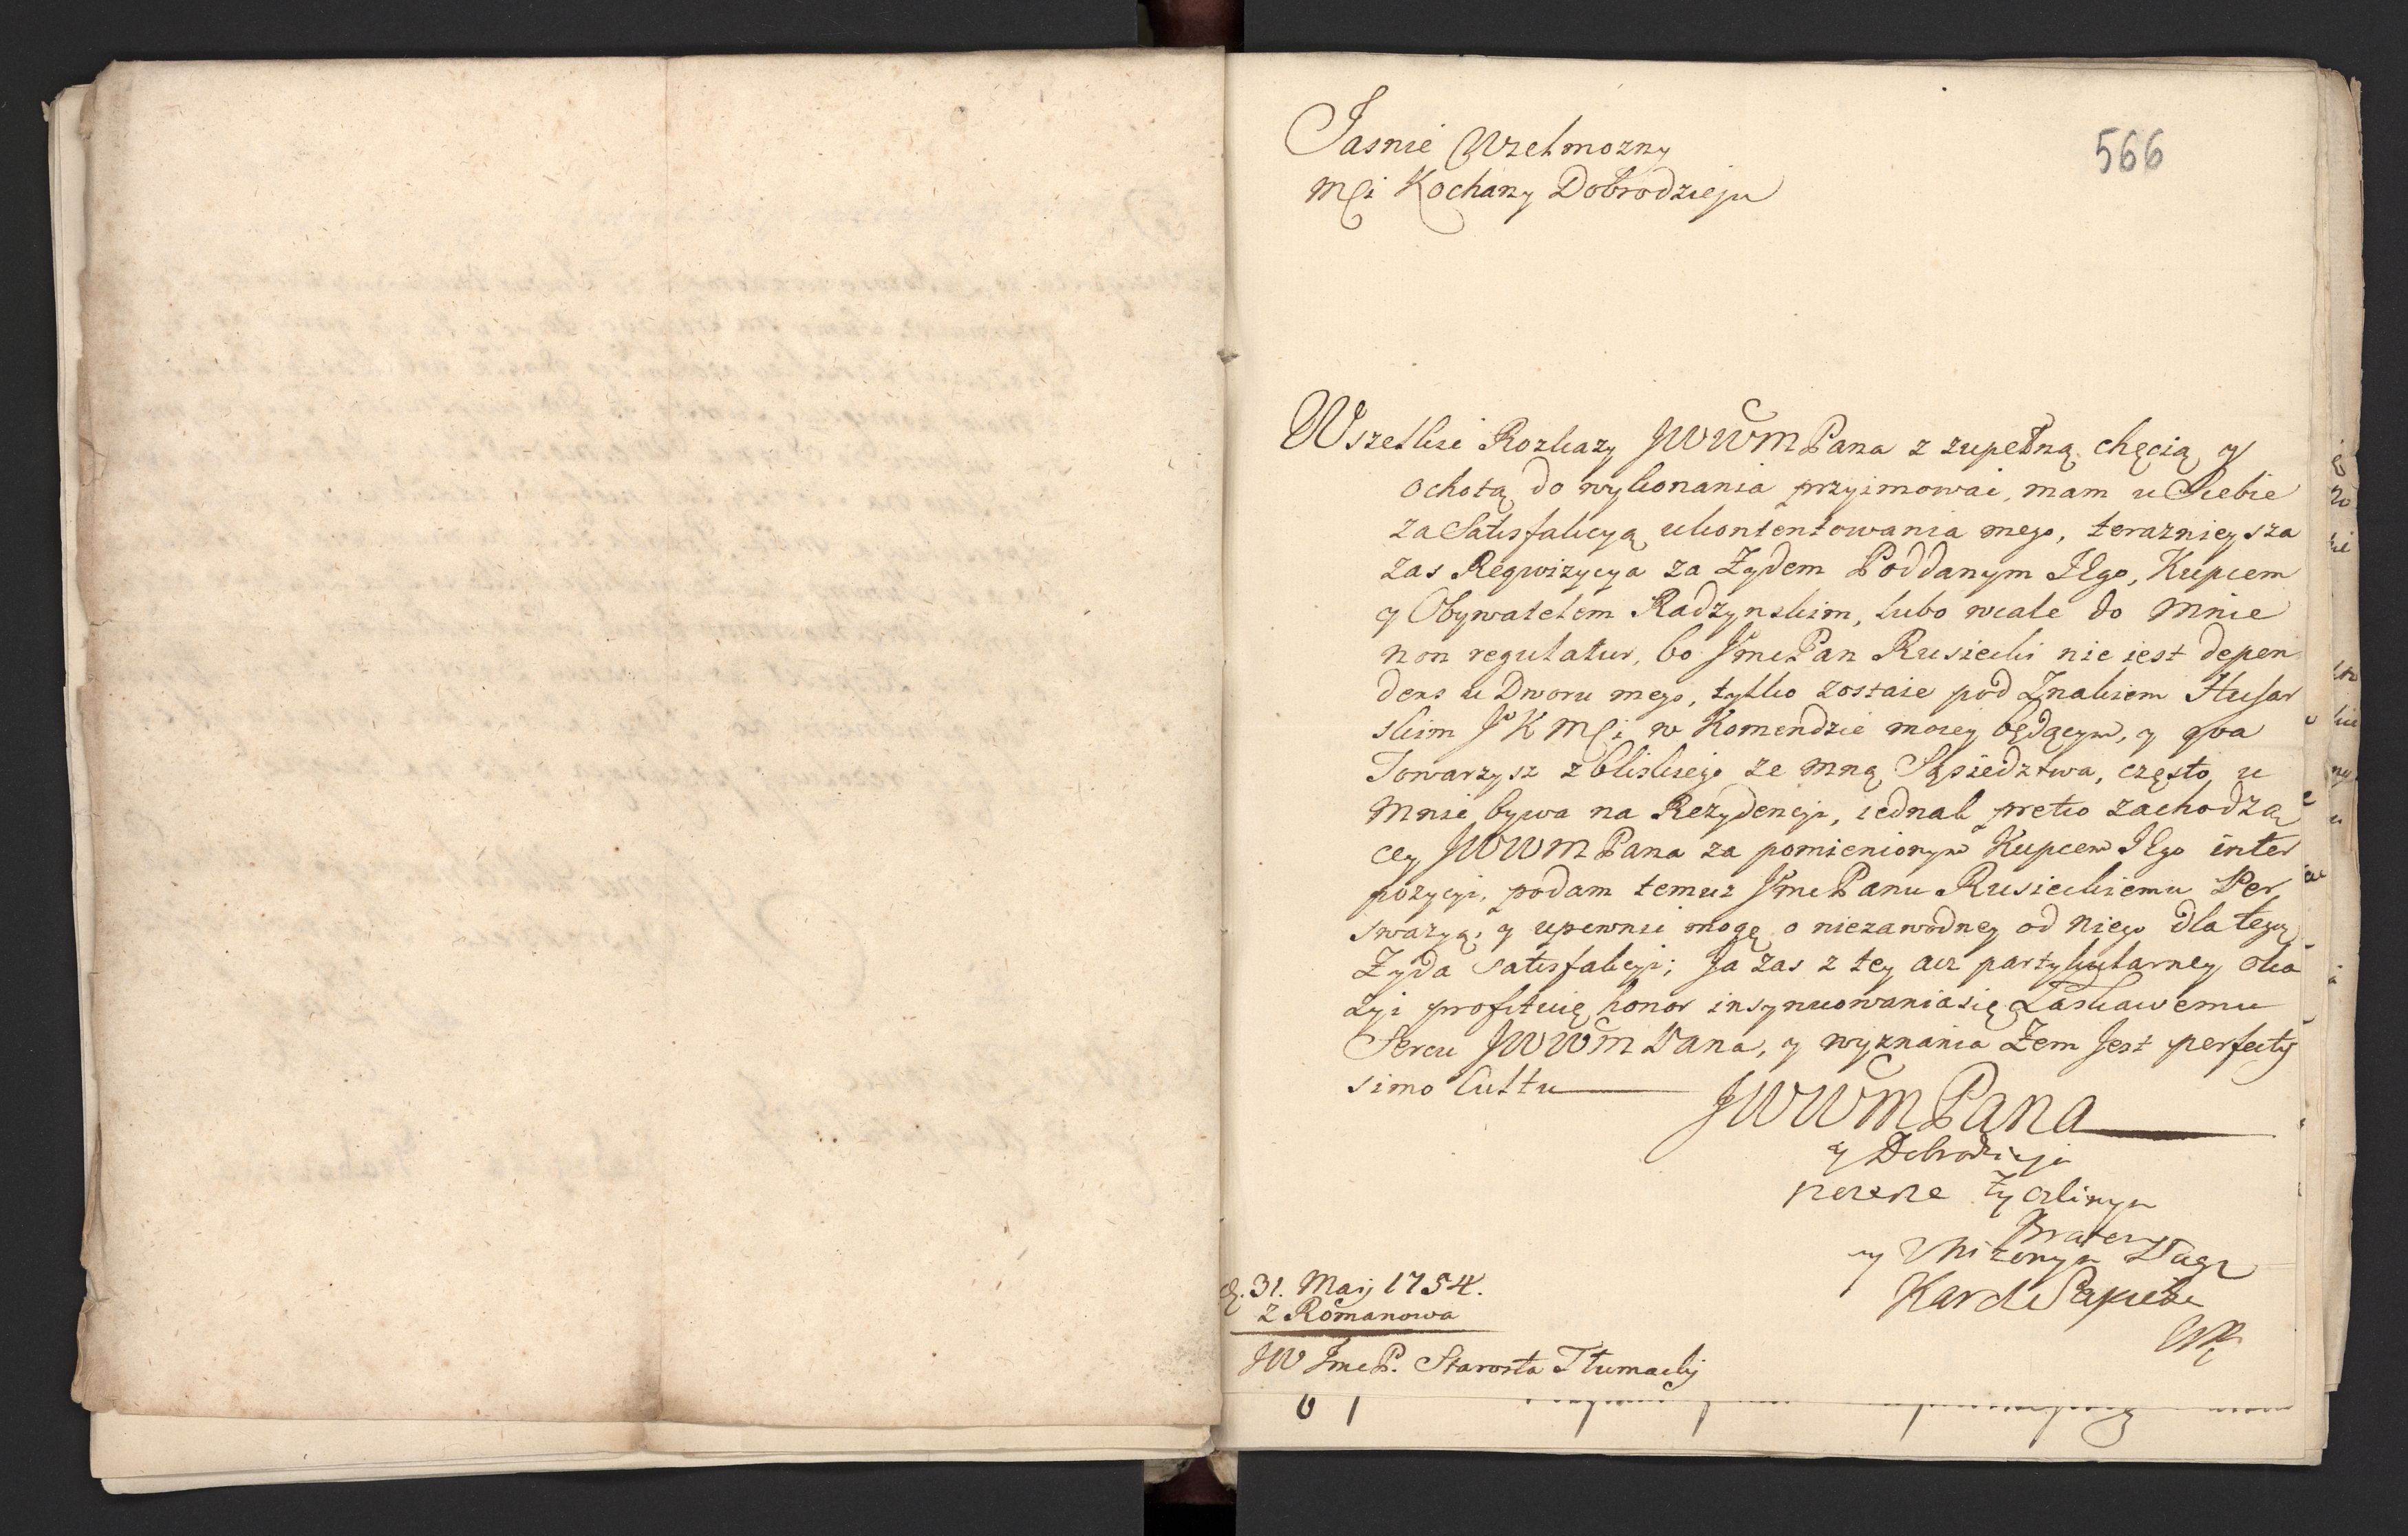 566
Jasnie Wielmozny
Mci Kochany Dobrodzieju
Wszelkie Rozkazy JWWM Pana z zupełną chęcią y
ochotą do wykonania przyimować, mam u Siebie
za Satisfakcyą ukontentowania mego, teraznieysza
zas Reqwizycya za Żydem Poddanym Jego, Kupcem
y Obywatelem Radzynskim, lubo wcale do mnie
non regulatur, bo Jmc Pan Rusiecki nie iest depen
dens u Dworu mego, tylko zostaie pod Znakiem Husar
skim JKMci w Komendzie moiey będącym, y qva
Towarzysz z bliskiego ze mną Sąsiedztwa, często u
mnie bywa na Rezydencyi, iednak pretio zachodzą
cey JWWM Pana za pomienionym Kupcem Jego inter
pozycyi, podam temuz Jmc Panu Rusieckiemu Per
swazyą, y upewnic mogę o niezawodney od niego dla tego
Żyda satisfakcyi; Ja zas z tey acz partykularney oka
zyi profituię honor insynuowania się Łaskawemu
Sercu JWWM Pana, y wyznania Żem Jest perfecty
simo Cultu
JWWM Pana
y Dobrodzieja
Bratem
y Unizonym Sługą
Karol Sapieha
d. 31. Maij 1754.
z Romanowa
JW Jmc P. Starosta Tłumacki